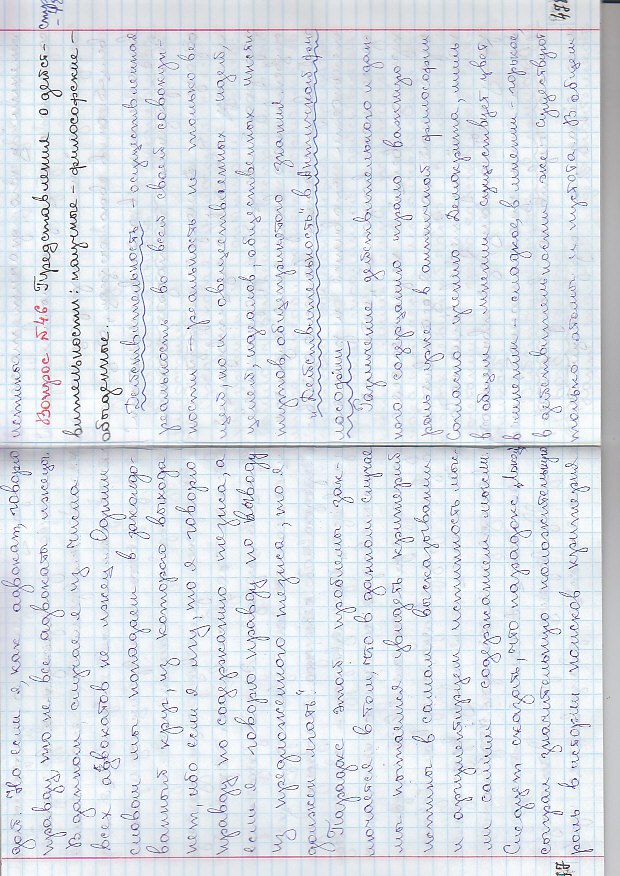 дят. Но если я, как адвокат, говорю
правду, то не все адвокаты лжецы.
В данном случае я из числа
всех адвокатов не лжец. Одним
словом мы попадаем в заколдо-
ванный круг, из которого выхода
нет, ибо если я лгу, то я говорю
правду по содержанию тезиса, а
если я говорю правду по выводу
из предложенного тезиса, то я
должен лгать."
Парадокс этой проблемы зак-
лючается в том, что в данном случае
мы пытаемся увидеть критерий
истины в самом высказывании
и аргументируем истинность мыс-
ли самим содержанием мысли.
Следует сказать, что парадокс Лжец
сыграл значительную положительную
роль в истории поисков критерия
77
истины.
Вопрос №46 Представления о дейст-
вительности: научные – философские –
обыденные.
Действительность – осуществленная
реальность во всей своей совокуп-
ности – реальность не только ве-
щей, но и овеществленных идей,
целей, идеалов, общественных инсти-
тутов, общепринятого знания.
"Действительность" в античной фи-
лософии.
Различение действительного и дан-
ного содержания играло важную
роль уже в античной философии
Согласно учению Демокрита, лишь
в общем мнении существует цвет,
в мнении – сладкое, в мнении – горькое,
в действительности же существуют
только атомы и пустота. В общем
стр.
478